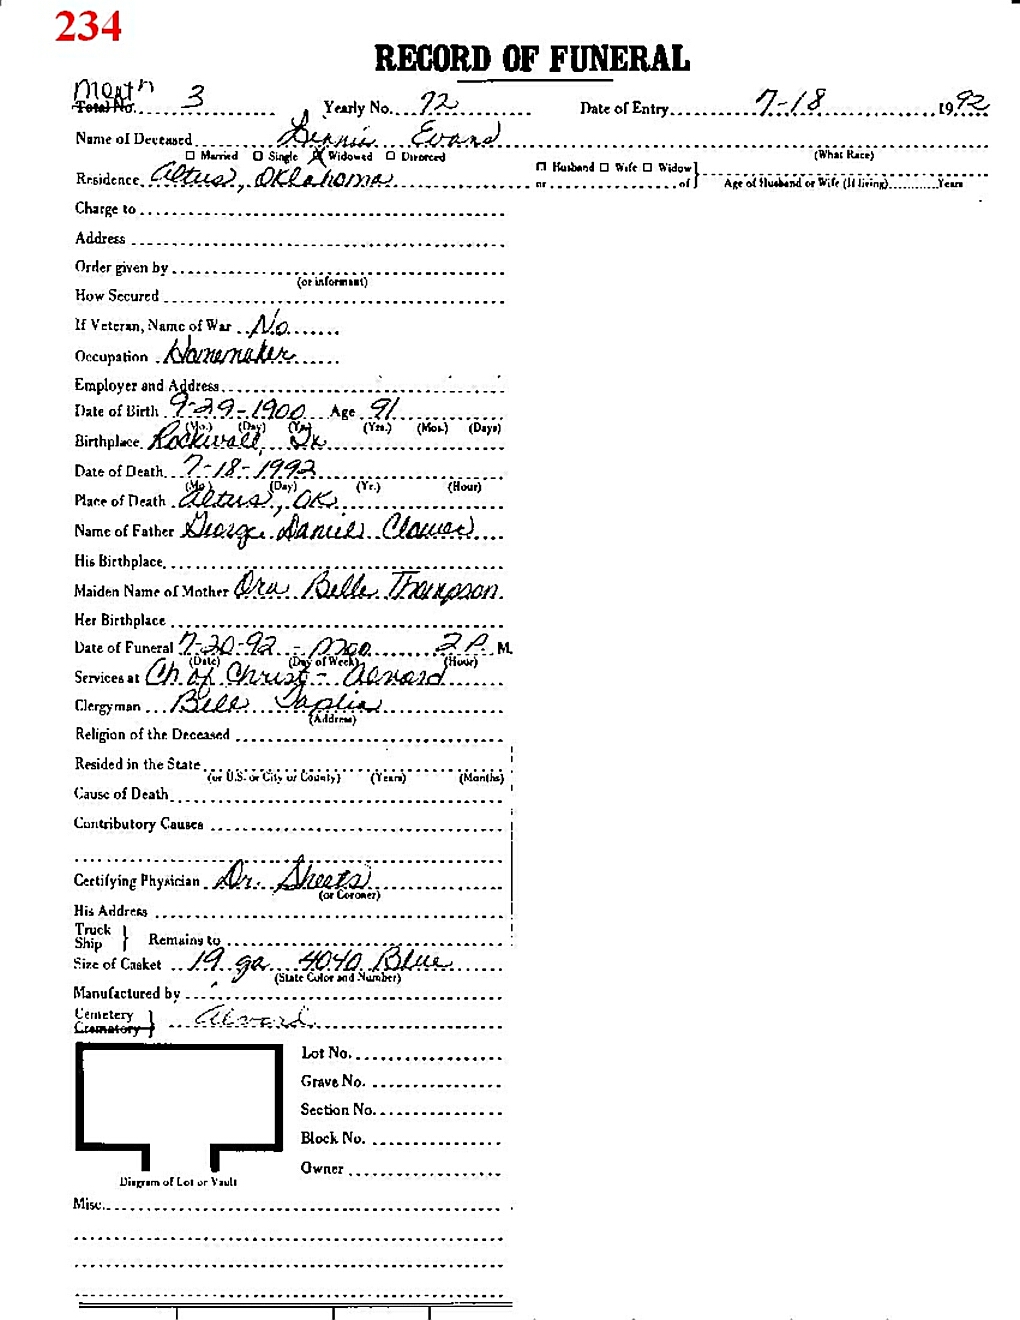 234
RECORD OF FUNERAL
Month
Total No. 3 Yearly No. 72 Date of Entry 7-18 1992
Name of Deceased Evans
☐ Married ☐ Single ☒ Widowed ☐ Divorced (What Race)
Residence Altus, Oklahoma ☐ Husband ☐ Wife ☐ Widow
or of Age of Husband or Wife (If living) Years
Charge to
Address
Order given by
(or informant)
How Secured
If Veteran, Name of War No
Occupation Homemaker
Employer and Address
Date of Birth 9-29-1900 Age 91
(Mo.) (Day) (Yr.) (Yrs.) (Mos.) (Days)
Birthplace Rockwall, Tx
Date of Death 7-18-1992
(Mo.) (Day) (Yr.) (Hour)
Place of Death Altus, OK
Name of Father George Daniel
His Birthplace
Maiden Name of Mother Ora Belle Thompson
Her Birthplace
Date of Funeral 7-20-92 - Mon 2 P. M.
(Date) (Day of Week) (Hour)
Services at Ch of Christ - Alvord
Clergyman Bill
(Address)
Religion of the Deceased
Resided in the State
(or U.S. or City or County) (Years) (Months)
Cause of Death
Contributory Causes
Certifying Physician Dr. Sheets
(or Coroner)
His Address
Truck
Ship } Remains to
Size of Casket 19 ga 4040 Blue
(State Color and Number)
Manufactured by
Cemetery
Crematory } Alvord
Lot No.
Grave No.
Section No.
Block No.
Owner
Diagram of Lot or Vault
Misc.